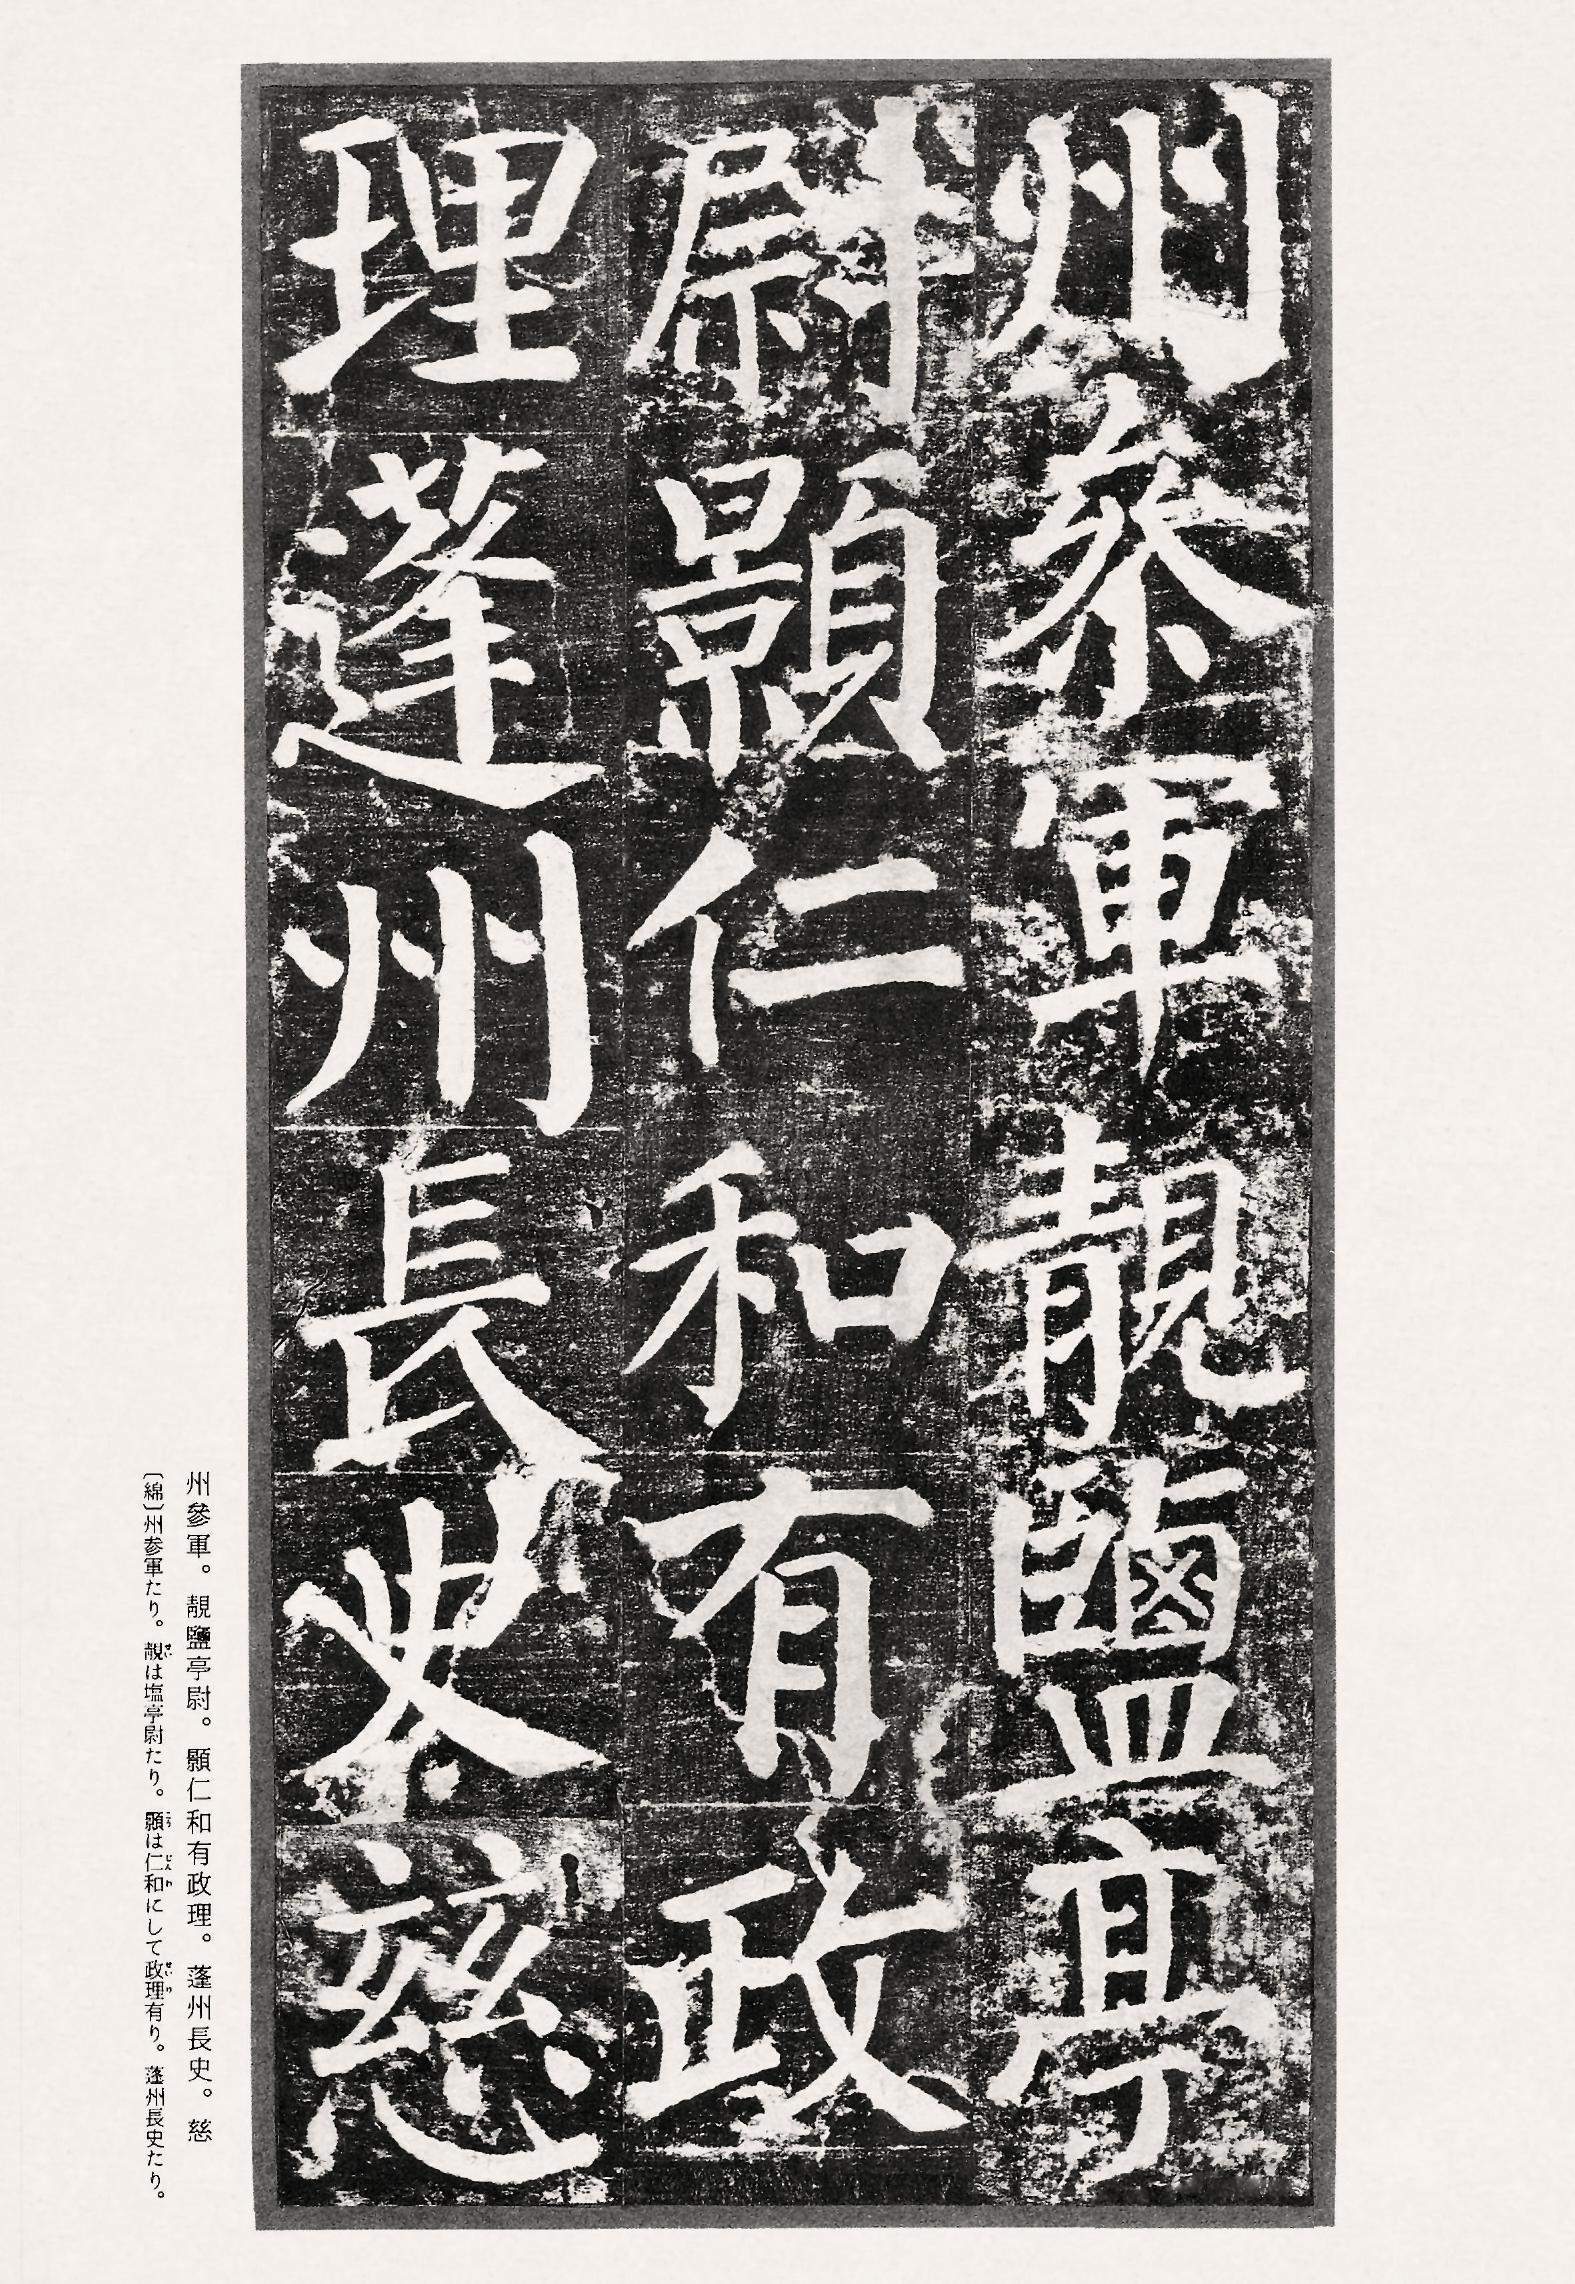 州參軍靚鹽亭
尉顥仁和有政
理蓬州長史慈
州參軍。靚鹽亭尉。顥仁和有政理。蓬州長史。慈
〔綿〕州参軍たり。靚は塩亭尉たり。顥は仁和にして政理有り。蓬州長史たり。